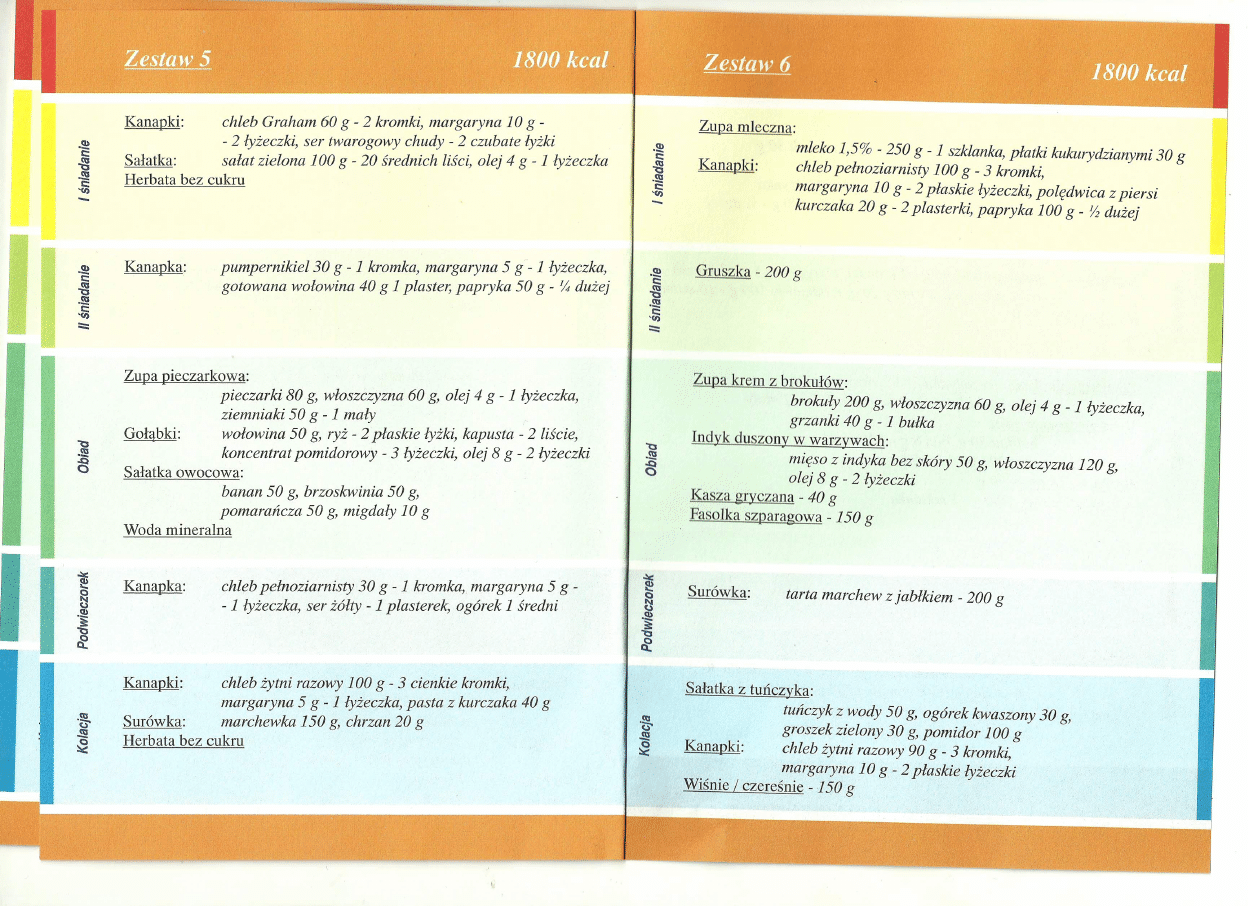 Zestaw 5 1800 kcal
I śniadanie
Kanapki: chleb Graham 60 g - 2 kromki, margaryna 10 g -
- 2 łyżeczki, ser twarogowy chudy - 2 czubate łyżki
Sałatka: sałat zielona 100 g - 20 średnich liści, olej 4 g - 1 łyżeczka
Herbata bez cukru
II śniadanie
Kanapka: pumpernikiel 30 g - 1 kromka, margaryna 5 g - 1 łyżeczka,
gotowana wołowina 40 g 1 plaster, papryka 50 g - ¼ dużej
Obiad
Zupa pieczarkowa:
pieczarki 80 g, włoszczyzna 60 g, olej 4 g - 1 łyżeczka,
ziemniaki 50 g - 1 mały
Gołąbki: wołowina 50 g, ryż - 2 płaskie łyżki, kapusta - 2 liście,
koncentrat pomidorowy - 3 łyżeczki, olej 8 g - 2 łyżeczki
Sałatka owocowa:
banan 50 g, brzoskwinia 50 g,
pomarańcza 50 g, migdały 10 g
Woda mineralna
Podwieczorek
Kanapka: chleb pełnoziarnisty 30 g - 1 kromka, margaryna 5 g -
- 1 łyżeczka, ser żółty - 1 plasterek, ogórek 1 średni
Kolacja
Kanapki: chleb żytni razowy 100 g - 3 cienkie kromki,
margaryna 5 g - 1 łyżeczka, pasta z kurczaka 40 g
Surówka: marchewka 150 g, chrzan 20 g
Herbata bez cukru
Zestaw 6 1800 kcal
I śniadanie
Zupa mleczna:
mleko 1,5% - 250 g - 1 szklanka, płatki kukurydzianymi 30 g
Kanapki: chleb pełnoziarnisty 100 g - 3 kromki,
margaryna 10 g - 2 płaskie łyżeczki, polędwica z piersi
kurczaka 20 g - 2 plasterki, papryka 100 g - ½ dużej
II śniadanie
Gruszka - 200 g
Obiad
Zupa krem z brokułów:
brokuły 200 g, włoszczyzna 60 g, olej 4 g - 1 łyżeczka,
grzanki 40 g - 1 bułka
Indyk duszony w warzywach:
mięso z indyka bez skóry 50 g, włoszczyzna 120 g,
olej 8 g - 2 łyżeczki
Kasza gryczana - 40 g
Fasolka szparagowa - 150 g
Podwieczorek
Surówka: tarta marchew z jabłkiem - 200 g
Kolacja
Sałatka z tuńczyka:
tuńczyk z wody 50 g, ogórek kwaszony 30 g,
groszek zielony 30 g, pomidor 100 g
Kanapki: chleb żytni razowy 90 g - 3 kromki,
margaryna 10 g - 2 płaskie łyżeczki
Wiśnie / czereśnie - 150 g